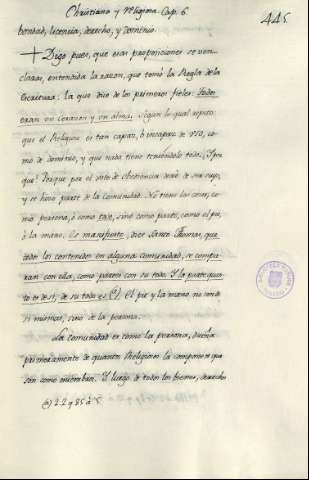 Christiano y religioso. Cap. 6.
445
bondad, licencia, derecho, y dominio.
Digo pues, que esas proposiciones se con-
cilian, entendida la razon, que tomó la Regla de la
Escritura: la que dice de los primeros fieles: Todos
eran un Corazon y un alma. Segun lo qual repito:
que el Religioso es tan capaz, o incapaz de uso, co-
mo de dominio, y que nada tiene teniendolo todo. ¿Por
que? Porque por el voto de obediencia dexó de ser suyo,
y se hizo parte de la Comunidad. No tiene las cosas, co-
mo persona, o como todo, sino como parte, como el pie,
o la mano. Es manifiesto, dice Santo Thomas, que
todos los contenidos en alguna comunidad, se compa-
ran con ella, como partes con su todo. Y la parte quan-
to es de sí, de su todo es (a). El pie y la mano no son de
sí mismas, sino de la persona.
La comunidad es como la persona, dueña
primeramente de quantos Religiosos la componen que
son como miembros. Y luego de todos los bienes, derechos
(a) 2. 2. q.